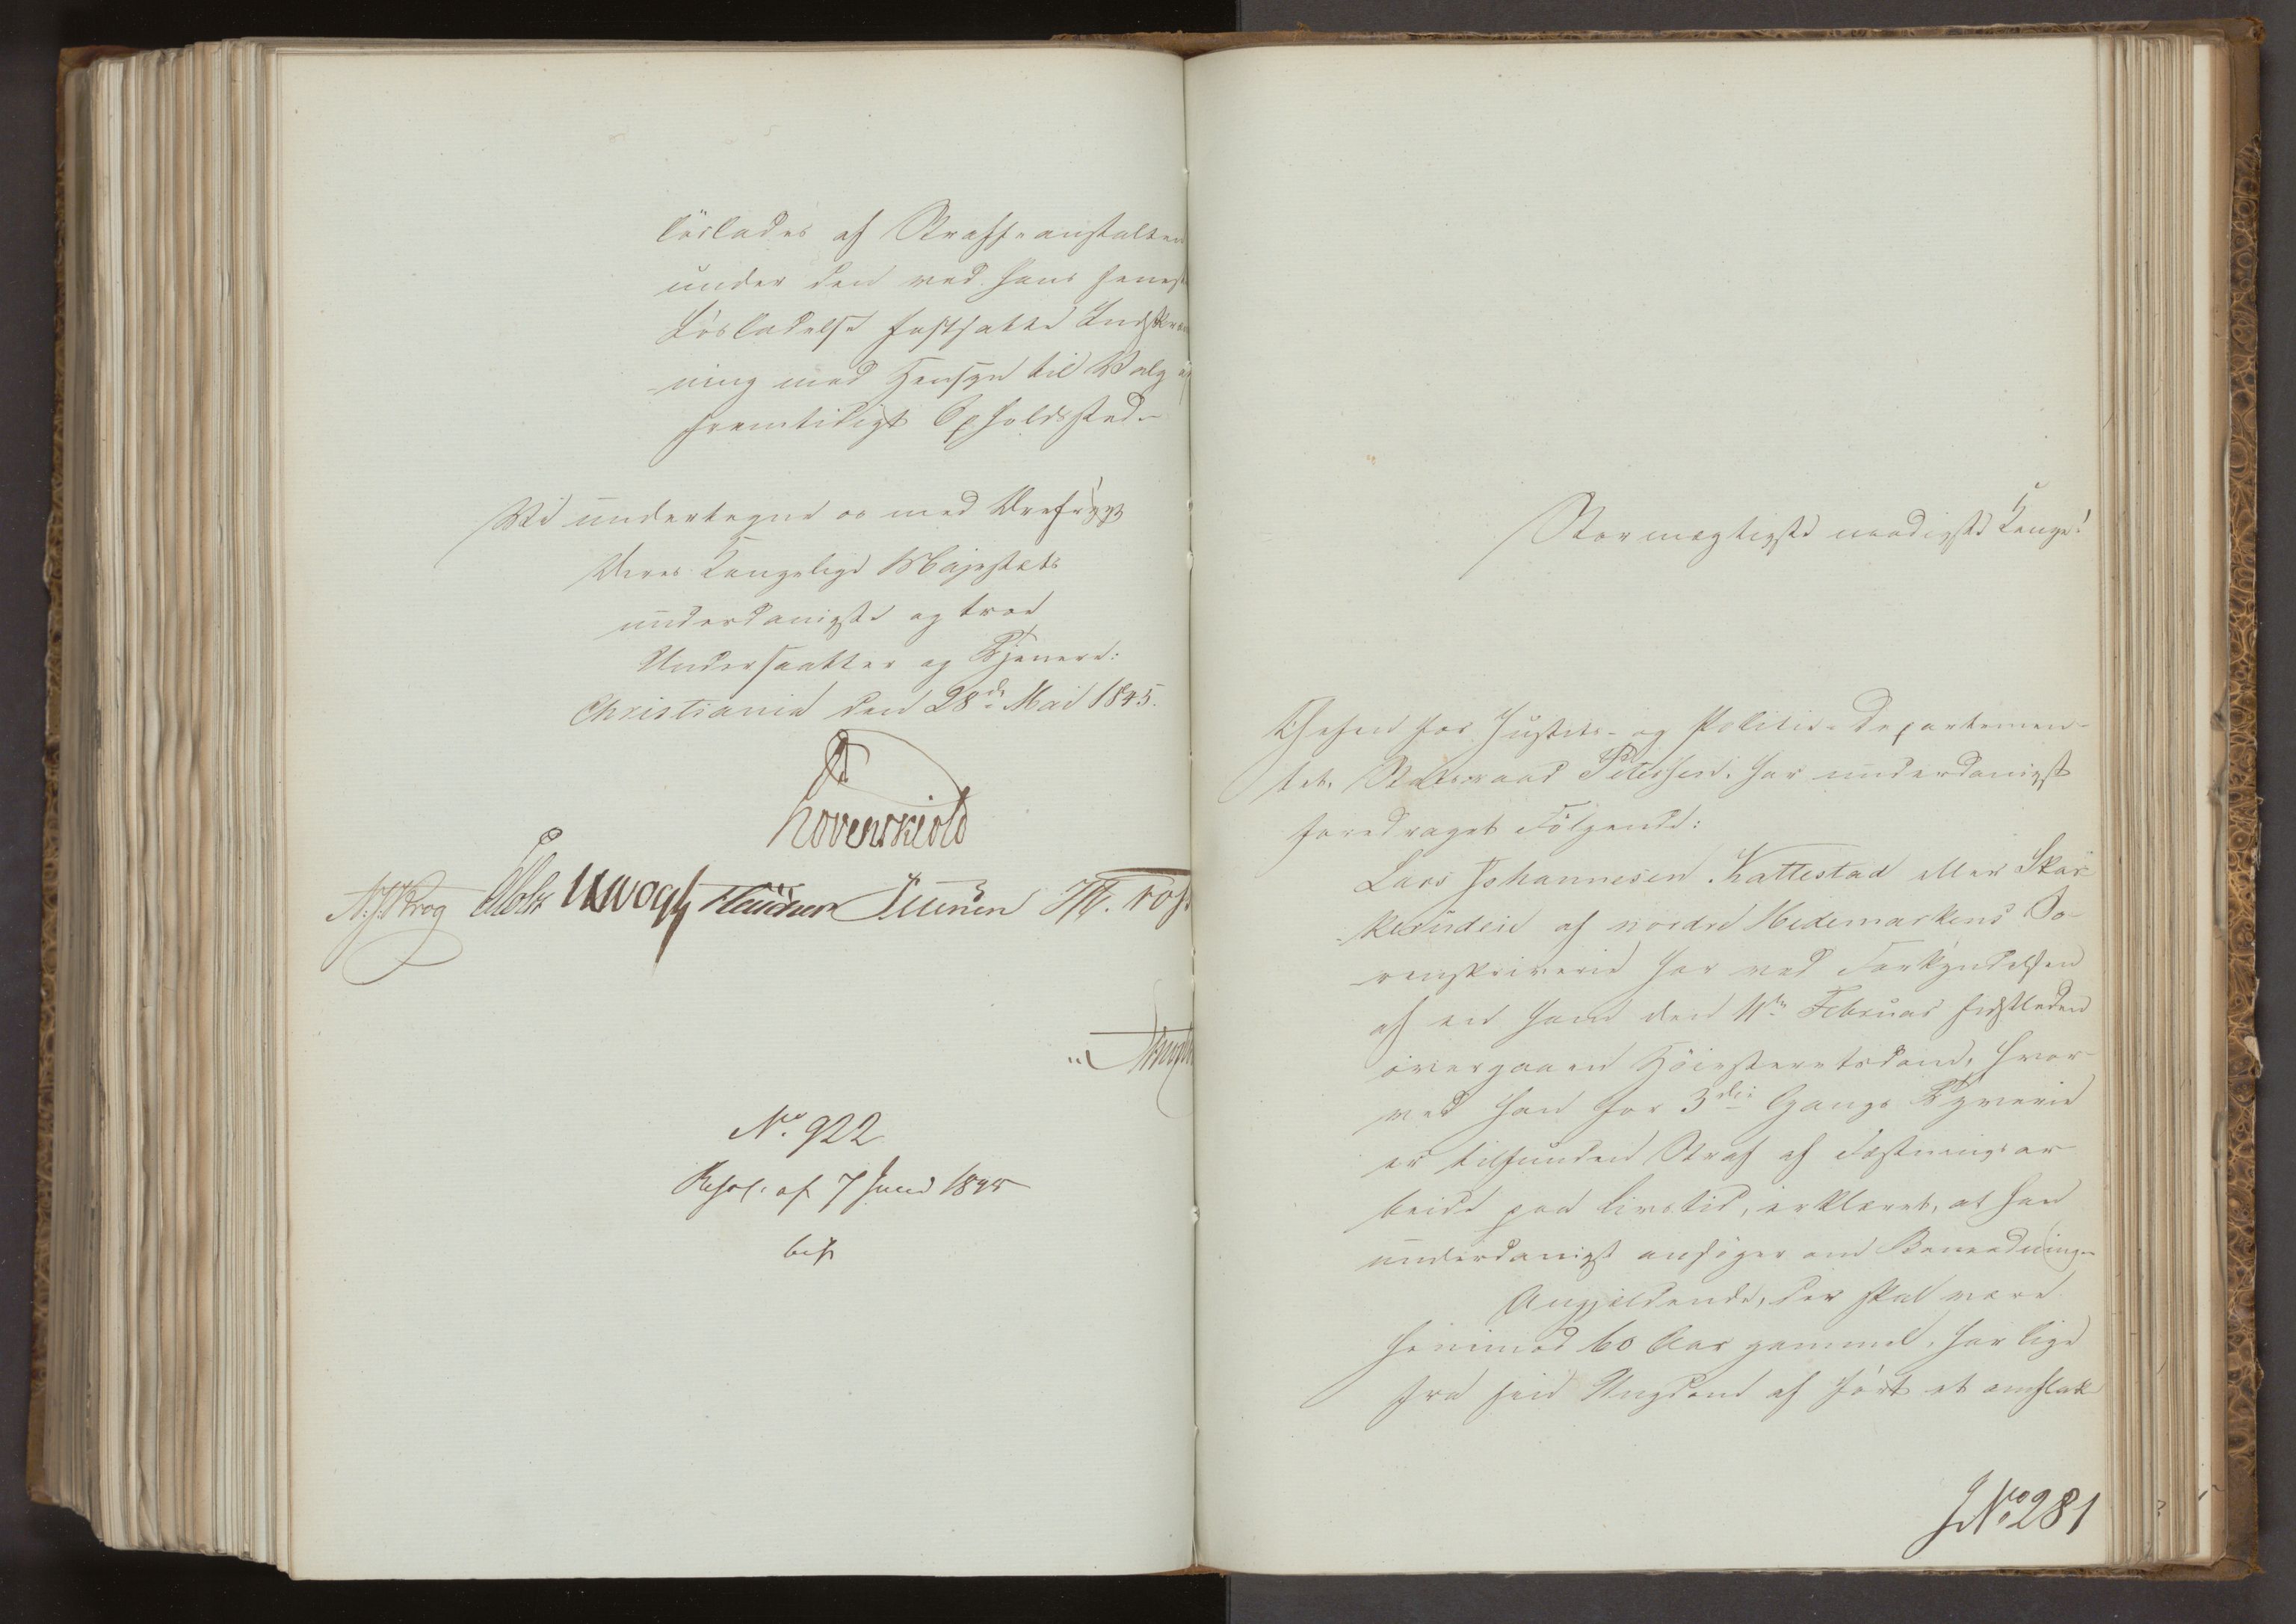 löslades af Strafeanstalten
under den ved hans seneste
Lösladelse fastsatte Indskræn
ning med Hensyn til Valg af
fremtidigt Opholdssted.
Vi undertegne os med Ærefrygt
Deres Kongelige Majestæts
underdanigste og troe
Undersaatter og Tjenere:
Christiania den 28de Mai 1845.
Lövenskiold
N. J. Krog Vogt Sibbern
No. 922
Resol. af 7 Juni 1845
Stormægtigste naadigste Konge!
Chefen for Justits- og Politie-Departemen-
tet, Statsraad Petersen, har underdanigst
foredraget Følgende:
Lars Johannesen Kattestad eller Skar-
kerudeie af nordre Hedemarkens So-
renskriverie har ved Forkyndelsen
af en ham den 11te Februar sidstleden
overgaaen Höiesteretsdom, hvor-
ved han for 3die Gangs Tyverie
er tilfunden Straf af Fæstningsar-
beide paa Livstid, erklæret, at han
underdanigst ansöger om Benaadning.
Angjeldende, der skal være
henimod 60 Aar gammel, har lige
fra sin Ungdom af fört et omflak
JNo 281